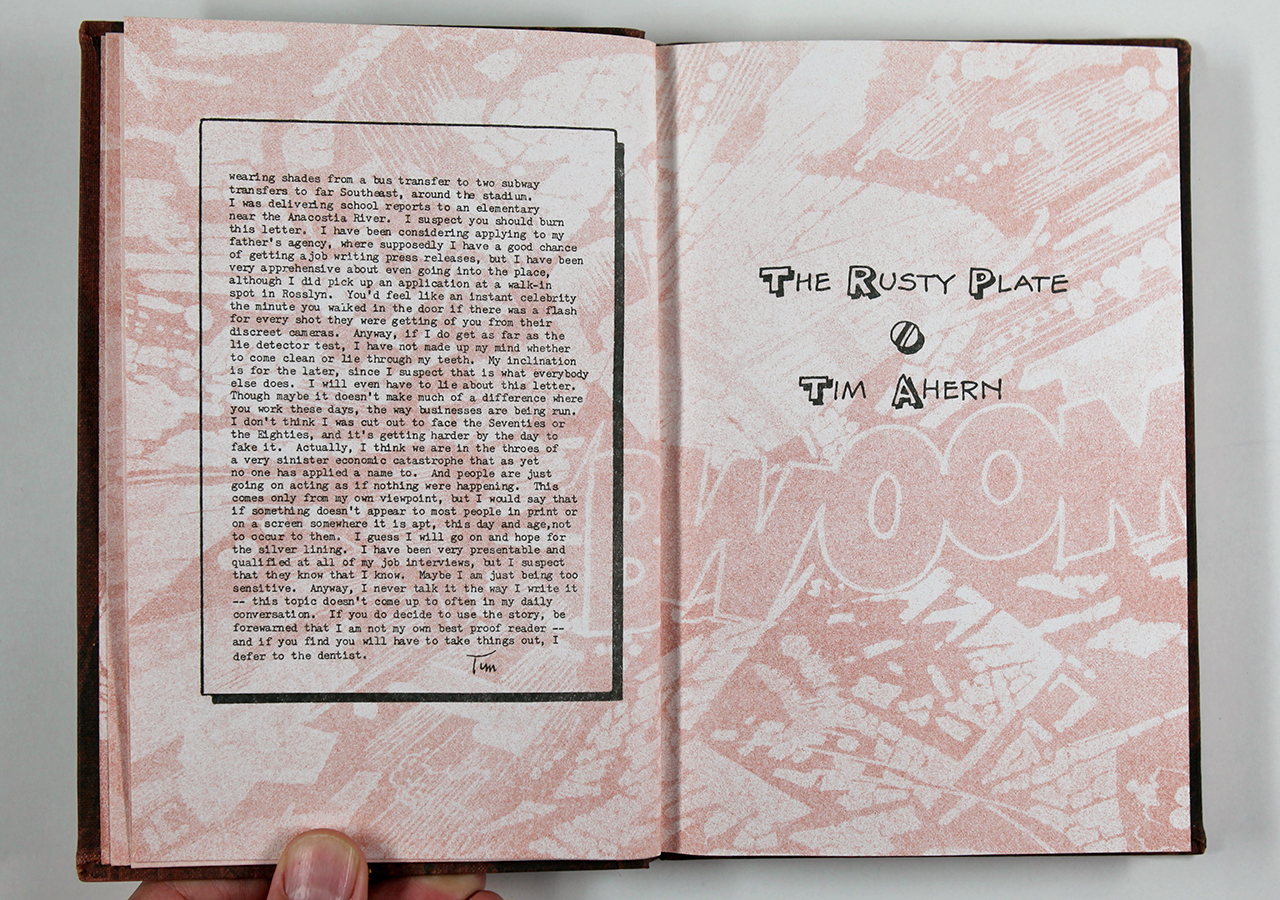 wearing shades from a bus transfer to two subway
transfers to far Southeast, around the stadium.
I was delivering school reports to an elementary
near the Anacostia River.  I suspect you should burn
this letter.  I have been considering applying to my
father's agency, where supposedly I have a good chance
of getting a job writing press releases, but I have been
very apprehensive about even going into the place,
although I did pick up an application at a walk-in
spot in Rosslyn.  You'd feel like an instant celebrity
the minute you walked in the door if there was a flash
for every shot they were getting of you from their
discreet cameras.  Anyway, if I do get as far as the
lie detector test, I have not made up my mind whether
to come clean or lie through my teeth.  My inclination
is for the later, since I suspect that is what everybody
else does.  I will even have to lie about this letter.
Though maybe it doesn't make much of a difference where
you work these days, the way businesses are being run.
I don't think I was cut out to face the Seventies or
the Eighties, and it's getting harder by the day to
fake it.  Actually, I think we are in the throes of
a very sinister economic catastrophe that as yet
no one has applied a name to.  And people are just
going on acting as if nothing were happening.  This
comes only from my own viewpoint, but I would say that
if something doesn't appear to most people in print or
on a screen somewhere it is apt, this day and age,not
to occur to them.  I guess I will go on and hope for
the silver lining.  I have been very presentable and
qualified at all of my job interviews, but I suspect
that they know that I know.  Maybe I am just being too
sensitive.  Anyway, I never talk it the way I write it
-- this topic doesn't come up to often in my daily
conversation.  If you do decide to use the story, be
forewarned that I am not my own best proof reader --
and if you find you will have to take things out, I
defer to the dentist.
Tim
THE RUSTY PLATE
TIM AHERN
BWOOM